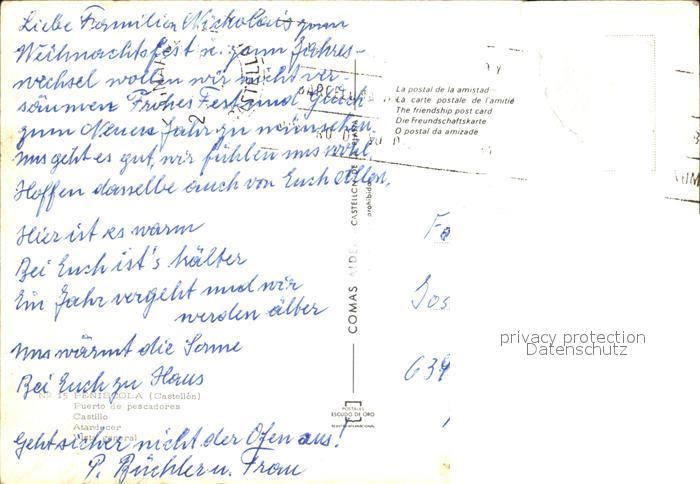 Liebe Familie Nickolais zum
Weihnachtsfest u. zum Jahres-
wechsel wollen wir nicht ver-
säumen Frohes Fest und Glück
zum Neuen Jahr zu wünschen.
Uns geht es gut, wir fühlen uns wohl,
Hoffen dasselbe auch von Euch Allen.
Hier ist es warm
Bei Euch ist's kälter
Ein Jahr vergeht und wir
werden älter
Uns wärmt die Sonne
Bei Euch zu Haus
Geht sicher nicht der Ofen aus!
P. Büchler u. Frau
Nº 15 PEÑISCOLA (Castellón)
Puerto de pescadores
Castillo
Atardecer
general
COMAS ALDEA
CASTELLON DE
prohibida
POSTALES
ESCUDO DE ORO
REGISTRO INTERNACIONAL
La postal de la amistad
La carte postale de l'amitié
The friendship post card
Die Freundschaftskarte
O postal da amizade
Fa
Jos
639
privacy protection
Datenschutz